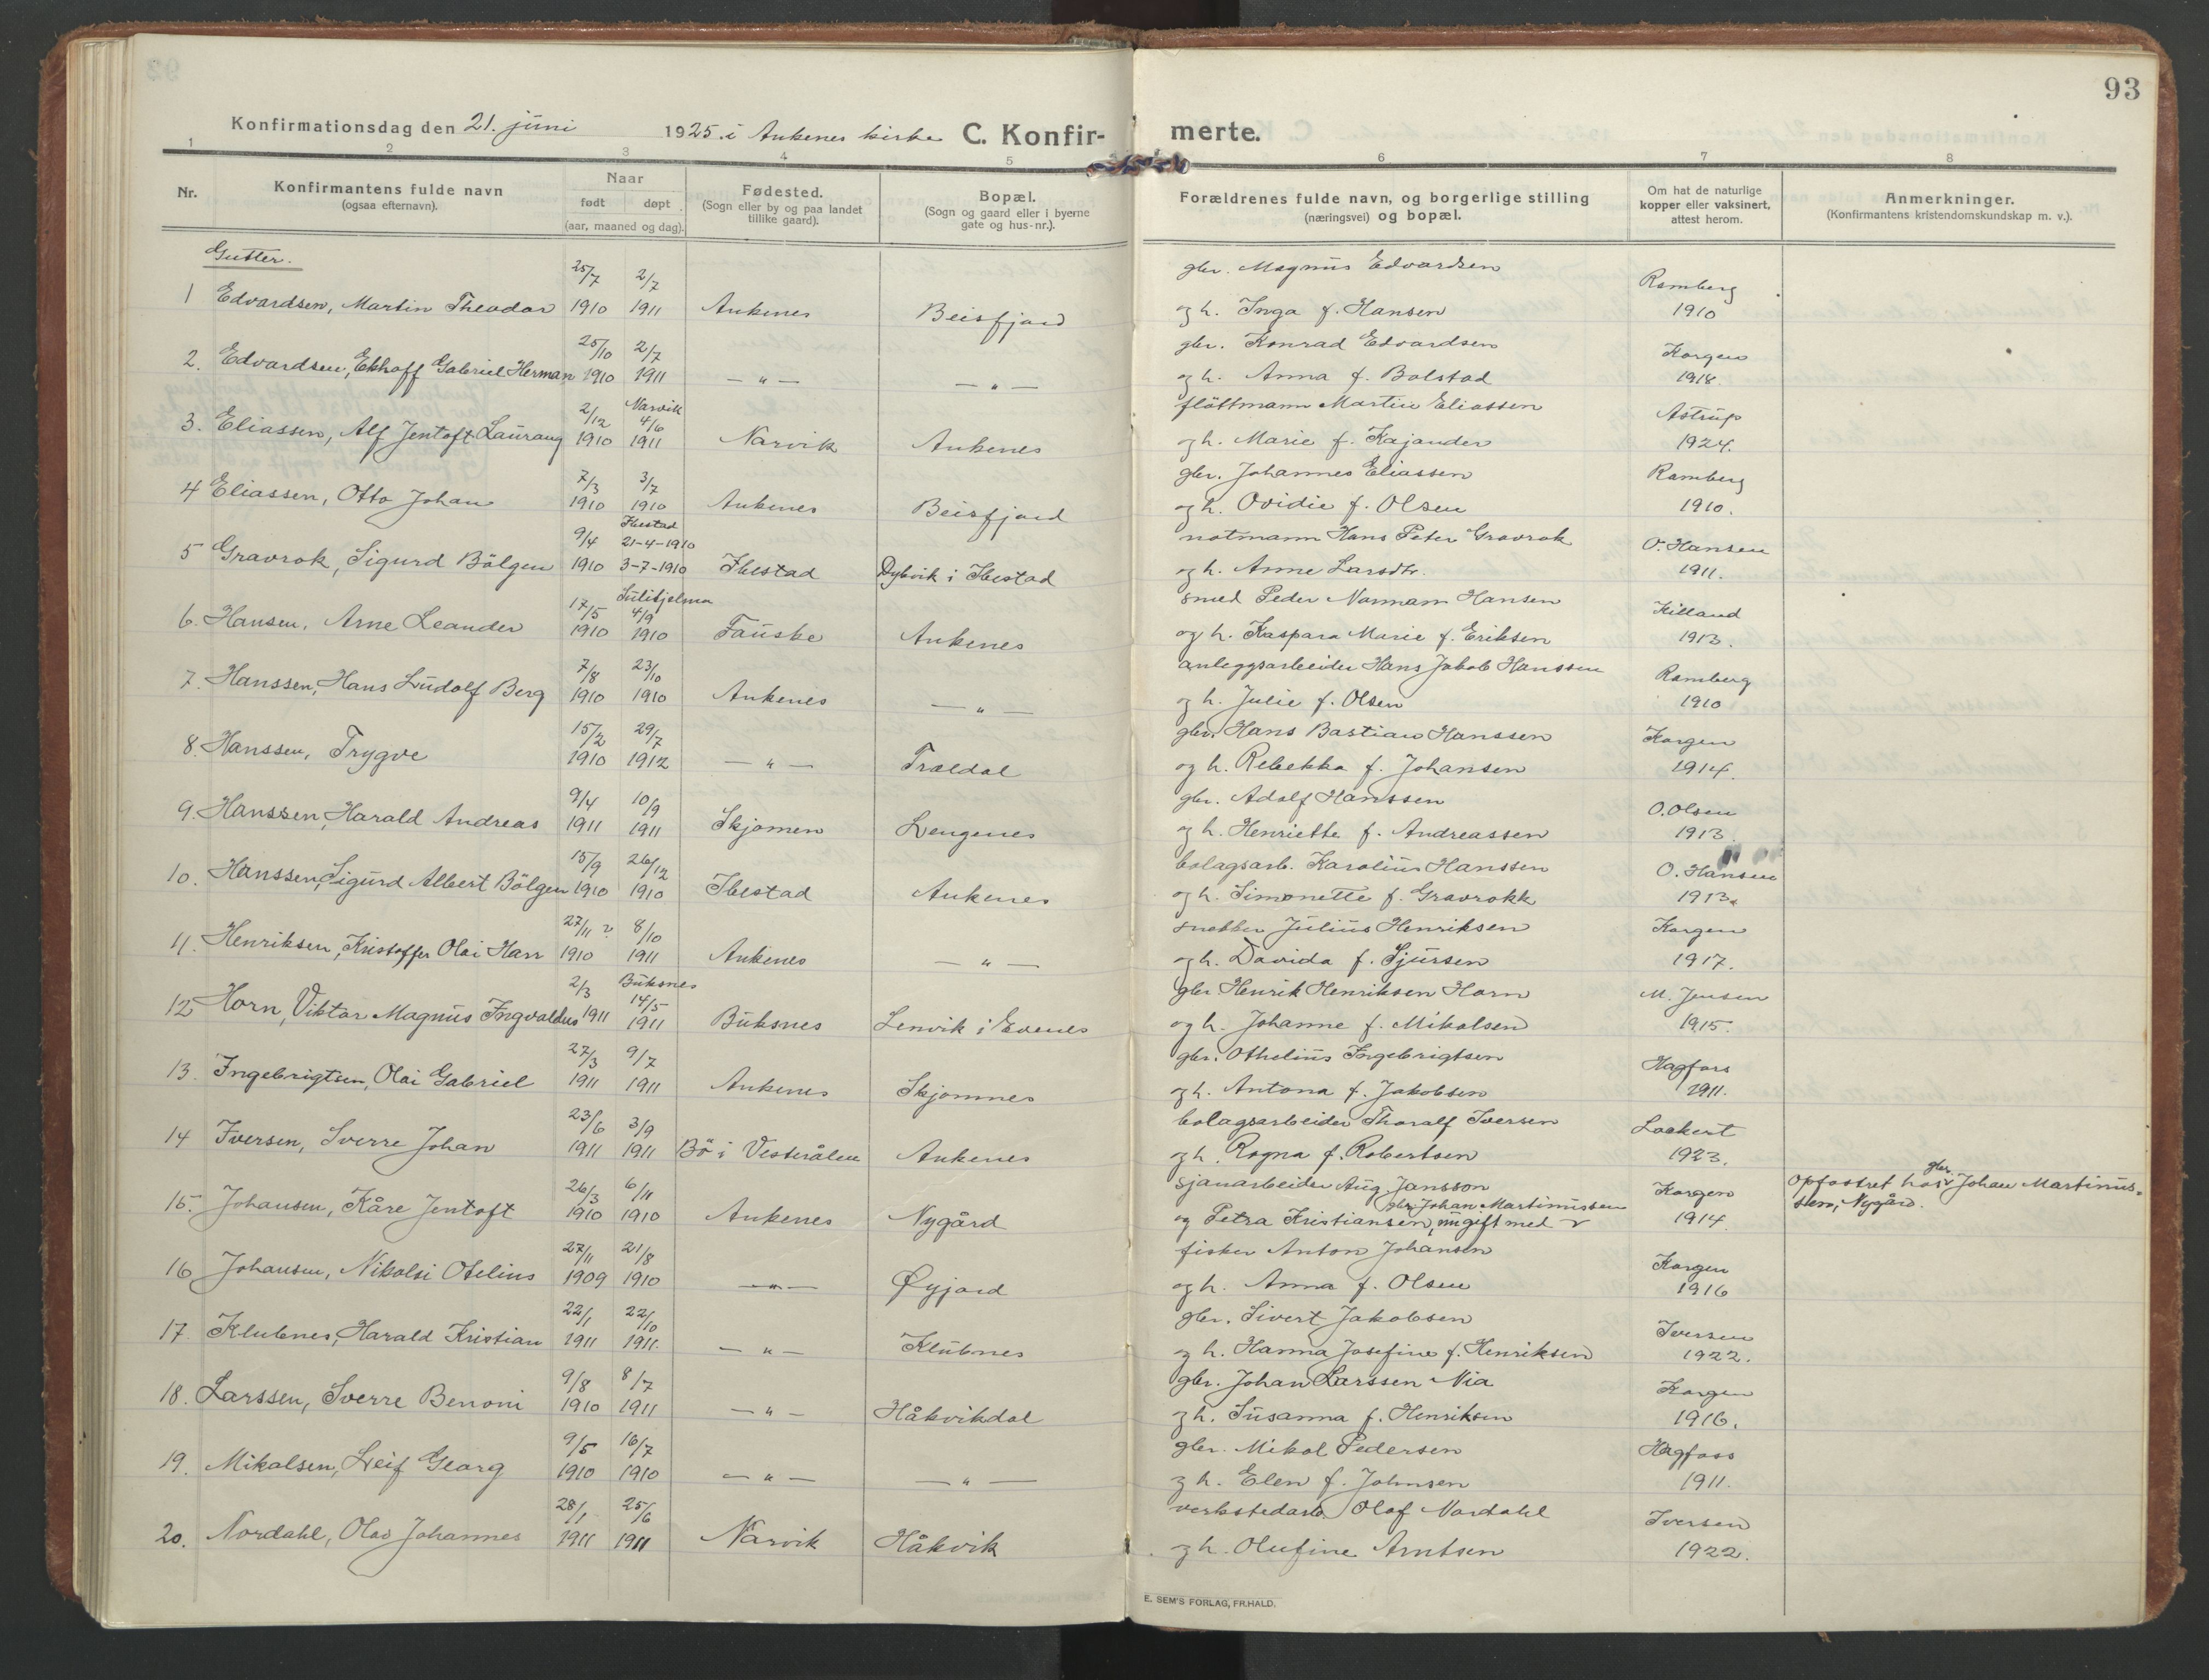 93
Konfirmationsdag den 21. juni 1925. i Ankenes kirke C. Konfir- merte.
1 2 3 4 5 6 7 8
Nr.
Konfirmantens fulde navn
(ogsaa efternavn).
Naar
født døpt
(aar, maaned og dag).
Fødested.
(Sogn eller by og paa landet
tillike gaard).
Bopæl.
(Sogn og gaard eller i byerne
gate og hus-nr.).
Forældrenes fulde navn, og borgerlige stilling
(næringsvei) og bopæl.
Om hat de naturlige
kopper eller vaksinert,
attest herom.
Anmerkninger.
(Konfirmantens kristendomskundskap m. v.).
Gutter.
25/7 2/7 gbr. Magnus Edvardsen Ramberg
1 Edvardsen, Martin Theodor 1910 1911 Ankenes Beisfjord og h. Inga f. Hansen 1910
25/10 2/7 gbr. Konrad Edvardsen Korgen
2. Edvardsen, Ekhoff Gabriel Herman 1910 1911 — " — — " — og h. Anna f. Bolstad 1918.
2/12 Narvik 4/6 flöttmann Martin Eliassen Astrup
3. Eliassen, Alf Jentoft Laurang 1910 1911 Narvik Ankenes og h. Marie f. Kajander 1924.
7/3 3/7 gbr. Johannes Eliassen Ramberg
4 Eliassen, Otto Johan 1910 1910 Ankenes Beisfjord og h. Ovidie f. Olsen 1910.
9/4 Ibestad 21-4-1910 notmann Hans Peter Gravrok O. Hansen
5 Gravrok, Sigurd Bölgen 1910 3-7-1910 Ibestad Dybvik i Ibestad og h. Anne Larsdtr. 1911.
17/5 Sulitjelma 4/9 smed Peder Normann Hansen Killand
6. Hansen, Arne Leander 1910 1910 Fauske Ankenes og h. Kaspara Marie f. Eriksen 1913.
7/8 23/10 anleggsarbeider Hans Jakob Hanssen Ramberg
7. Hanssen, Hans Ludolf Berg 1910 1910 Ankenes — " — og h. Julie f. Olsen 1910
15/2 29/7 gbr. Hans Bastian Hanssen Korgen
8. Hanssen, Trygve 1910 1912 — " — Traldal og h. Rebekka f. Johansen 1914.
9/4 10/9 gbr. Adolf Hanssen O. Olsen
9. Hanssen, Harald Andreas 1911 1911 Skjomen Lengenes og h. Henriette f. Andreassen 1913
15/9 26/12 bolagsarb. Karolius Hanssen O. Hansen
10. Hanssen, Sigurd Albert Bölgen 1910 1910 Ibestad Ankenes og h. Simonette f. Gravrokk 1913.
27/11 ? 8/10 snekker Julius Henriksen Korgen
11. Henriksen, Kristoffer Olai Harr 1910 1911 Ankenes — " — og h. Davida f. Sjursen 1917.
2/3 Buksnes 14/5 gbr. Henrik Henriksen Horn M. Jensen
12 Horn, Viktor Magnus Ingvaldus 1911 1911 Buksnes Lenvik i Evenes og h. Johanne f. Mikalsen 1915.
27/3 9/7 gbr. Othelius Ingebrigtsen Hagfors
13. Ingebrigtsen, Olai Gabriel 1911 1911 Ankenes Skjomnes og h. Antona f. Jakobsen 1911.
23/6 3/9 bolagsarbeider Thoralf Iversen Lockert
14 Iversen, Sverre Johan 1911 1911 Bö i Vesterålen Ankenes og h. Ragna f. Robertsen 1923.
26/3 6/11 sjauarbeider Aug. Jansson Korgen Opfostret hos gbr. Johan Martinus-
15. Johansen, Kåre Jentoft 1910 1910 Ankenes Nygård og Petra Kristiansen, nu gift med gbr. Johan Martinussen 1914. sen, Nygård.
27/11 21/8 fisker Anton Johansen Korgen
16 Johansen, Nikolai Otelius 1909 1910 — " — Øyjord og h. Anna f. Olsen 1916
22/1 22/10 gbr. Sivert Jakobsen Iversen
17. Klubnes, Harald Kristian 1911 1911. — " — Klubnes og h. Hanna Josefine f. Henriksen 1922.
9/8 8/7 gbr. Johan Larssen Nia Korgen
18. Larssen, Sverre Benoni 1910 1911 — " — Håkvikdal og h. Susanna f. Henriksen 1916.
9/5 16/7 gbr. Mikal Pedersen Hagfoss
19. Mikalsen, Leif Georg 1910 1910 — " — — " — og h. Elen f. Johnsen 1911.
28/1 25/6 verkstedarb. Olaf Nordahl Iversen
20. Nordahl, Olav Johannes 1911 1911 Narvik Håkvik og h. Olufine Arntsen 1922.
E. SEM'S FORLAG, FR.HALD.